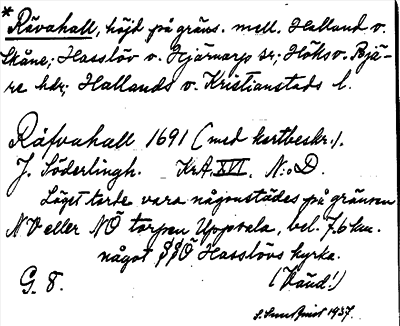 * Råvahall, höjd på gräns. mell. Halland o.
Skåne; Hasslöv o. Hjärnarp sr; Höks o. Bjä-
re hdr; Hallands o. Kristianstads l.
Råfvahall 1691 (med kartbeskr.).
J. Söderlingh. KrA. XVI. N:o D.
Läget torde vara någonstädes på gränsen
NV eller NÖ torpen Uppvala, bel. 7.6 km.
något SSÖ Hasslövs kyrka.
G. 8. (Vänd!)
1937.